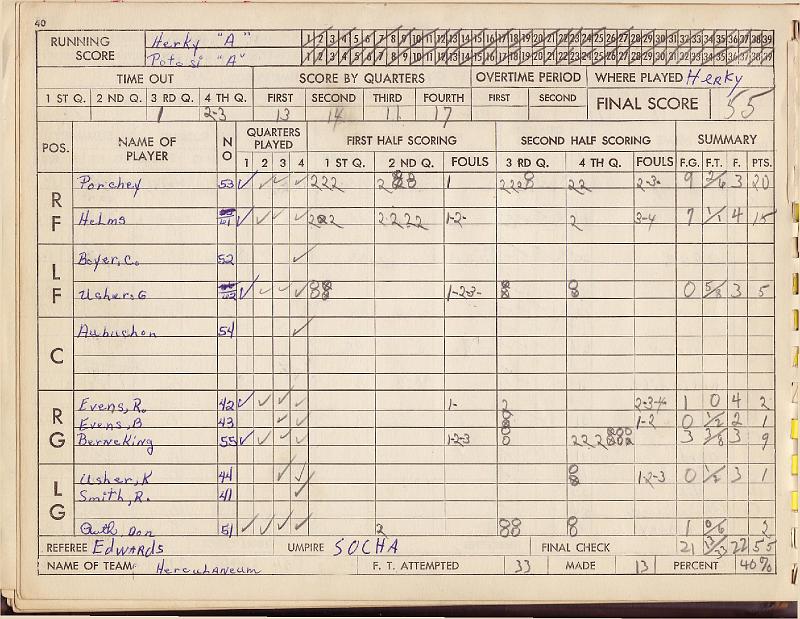 40
RUNNING SCORE Herky "A" 1 2 3 4 5 6 7 8 9 10 11 12 13 14 15 16 17 18 19 20 21 22 23 24 25 26 27 28 29 30 31 32 33 34 35 36 37 38 39
Potosi "A" 1 2 3 4 5 6 7 8 9 10 11 12 13 14 15 16 17 18 19 20 21 22 23 24 25 26 27 28 29 30 31 32 33 34 35 36 37 38 39
TIME OUT SCORE BY QUARTERS OVERTIME PERIOD WHERE PLAYED Herky
1 ST Q. 2 ND Q. 3 RD Q. 4 TH Q. FIRST SECOND THIRD FOURTH FIRST SECOND FINAL SCORE 55
1 2-3 13 14 11 17
POS. NAME OF PLAYER NO QUARTERS PLAYED FIRST HALF SCORING SECOND HALF SCORING SUMMARY
1 2 3 4 1 ST Q. 2 ND Q. FOULS 3 RD Q. 4 TH Q. FOULS F.G. F.T. F. PTS.
RF Porchey 53 ✓ ✓ ✓ ✓ 222 1 22 2-3- 9 2/6 3 20
Helms ✓ ✓ ✓ ✓ 2222 1-2- 2 3-4 7 1/1 4 15
LF Boyer, C. 52 ✓
Usher, G ✓ ✓ ✓ ✓ 1-2-3- 0 5/8 3 5
C Aubuchon 54 ✓
RG Evens, R. 42 ✓ ✓ ✓ ✓ 1- 2 2-3-4 1 0 4 2
Evens, B 43 ✓ ✓ 1-2 0 1/2 2 1
Berneking 55 ✓ ✓ ✓ ✓ 1-2-3 222 3 3/8 3 9
LG Usher, K 44 ✓ ✓ 1-2-3 0 1/2 3 1
Smith, R. 41 ✓
Don 51 ✓ ✓ ✓ ✓ 2 1 0/6 2
REFEREE Edwards UMPIRE SOCHA FINAL CHECK 21 13/33 22 55
NAME OF TEAM Herculaneum F. T. ATTEMPTED 33 MADE 13 PERCENT 40%